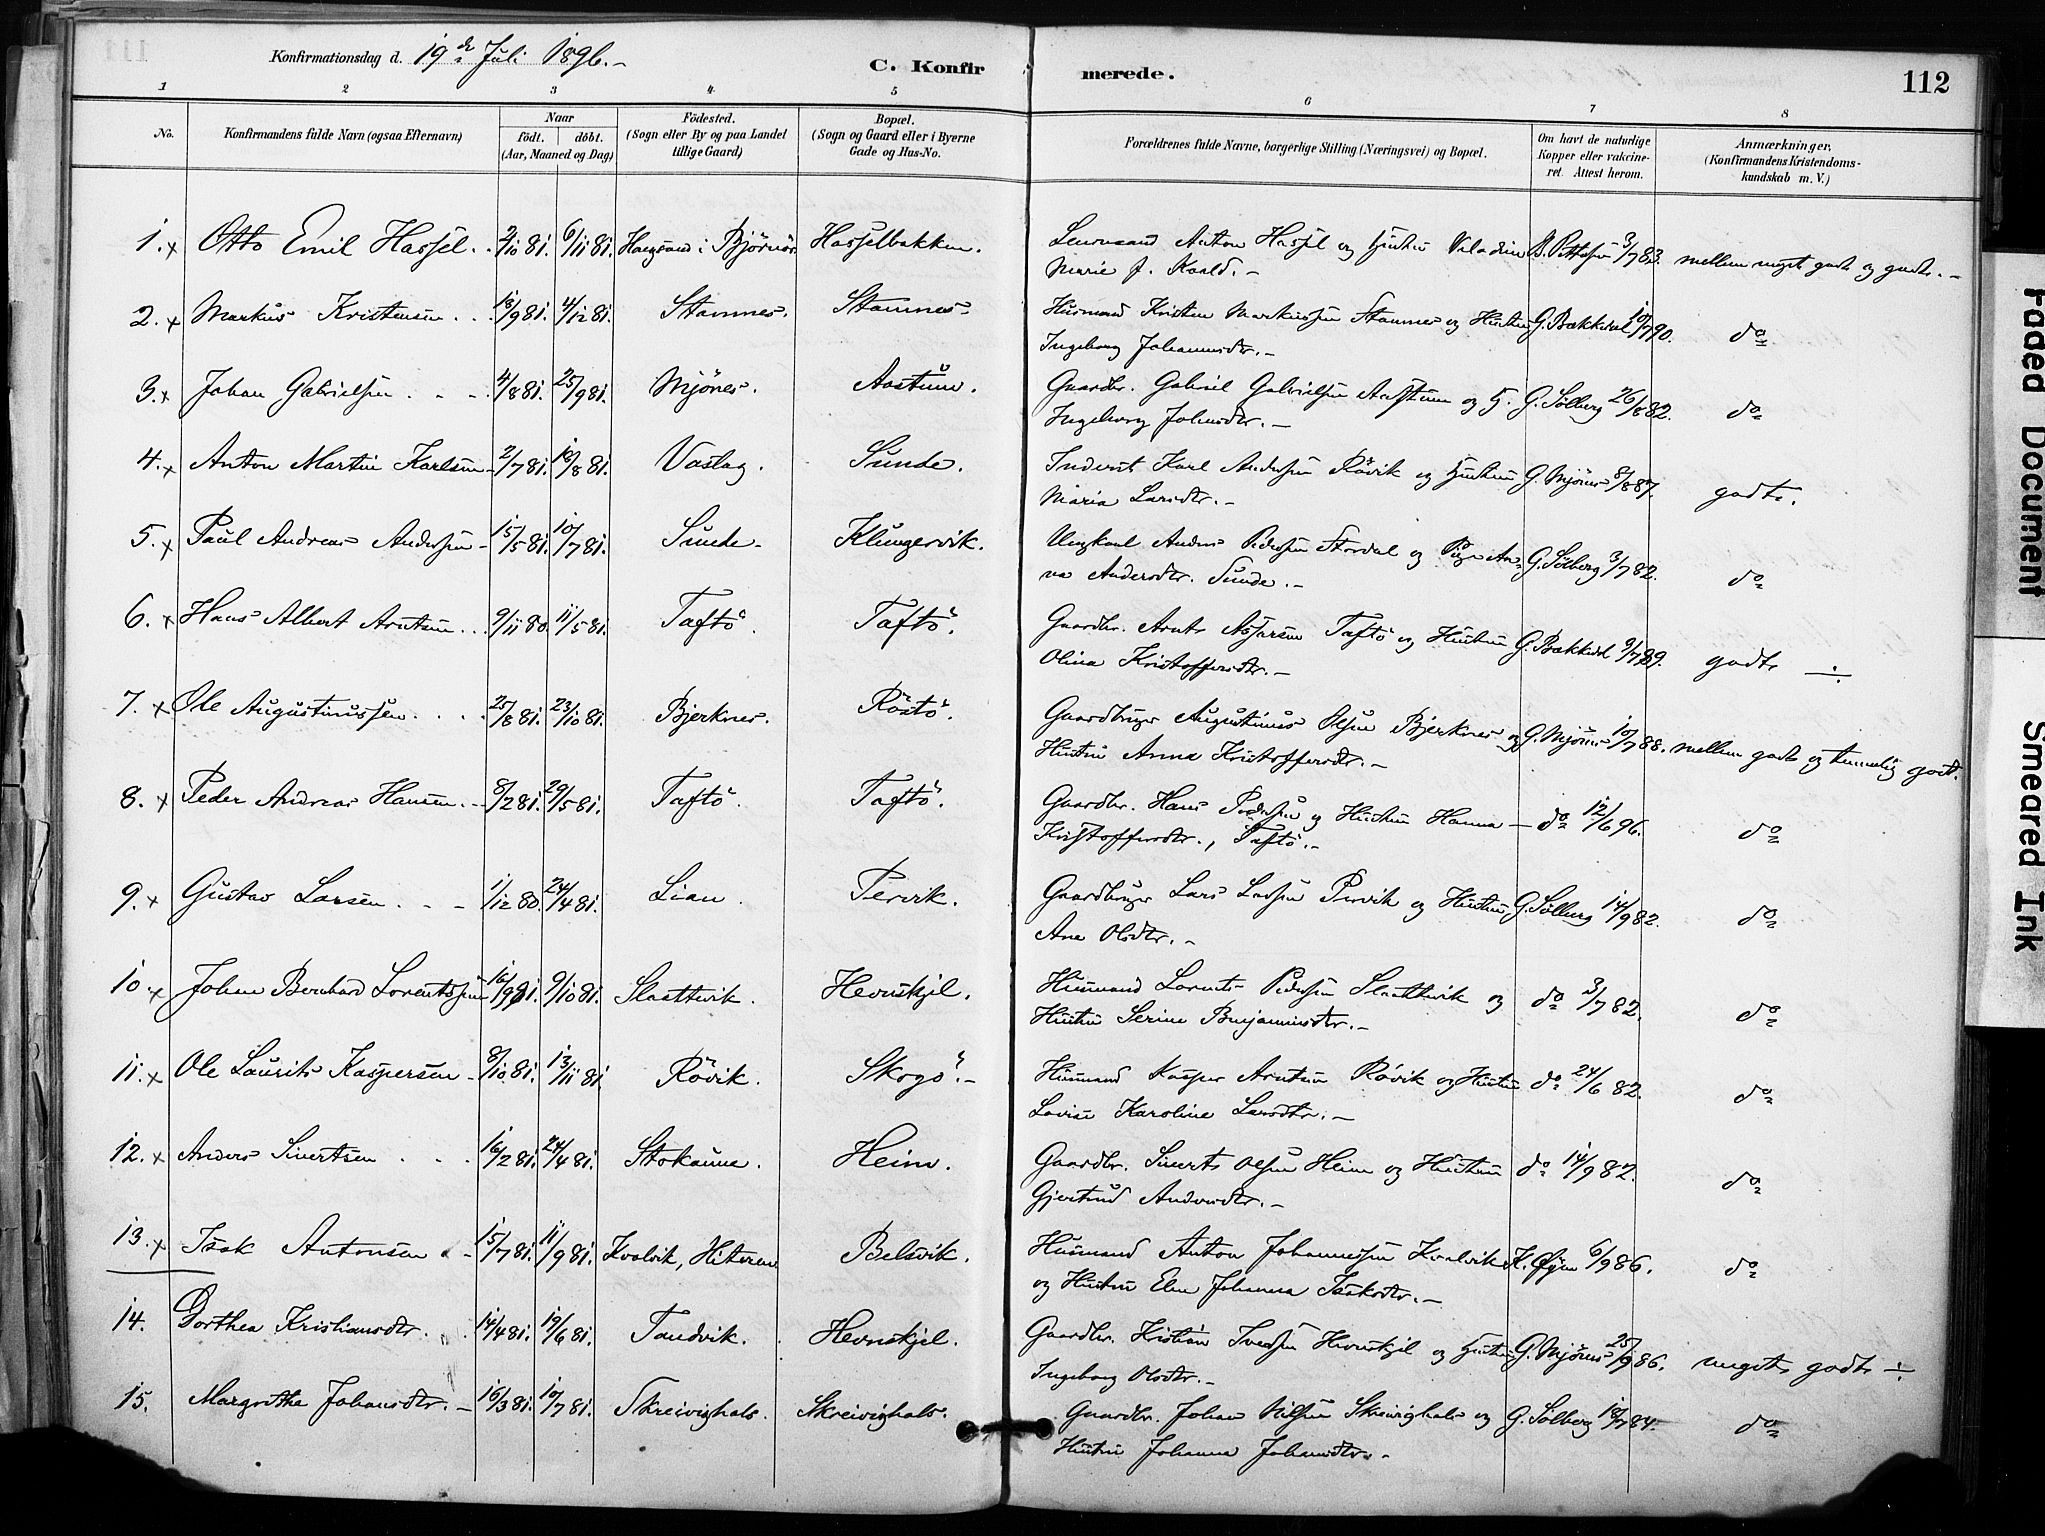 Konfirmationsdag d. 19de Juli 1896.-
C. Konfirmerede.
112
1 2 3 4 5 6 7 8
No.
Konfirmandens fulde Navn (ogsaa Efternavn)
Naar
födt. döbt.
(Aar, Maaned og Dag)
Födested.
(Sogn eller By og paa Landet
tillige Gaard)
Bopæl.
(Sogn og Gaard eller i Byerne
Gade og Hus-No.
Forældrenes fulde Navne, borgerlige Stilling (Næringsvei) og Bopæl.
Om havt de naturlige
Kopper eller vakcine-
ret. Attest herom.
Anmærkninger.
(Konfirmandens Kristendoms-
kundskab m. V.)
1. x Otto Emil Hassel. 2/10 81. 6/11 81. i Björnör. Hasselbakken. Anton Hassel og Hustru 3/7 83. mellem meget godt og godt. -
Marie f. Kaald. -
2. x Markus Kristensen . . 18/9 81. 4/12 81. Stamnes. Stamnes. Husmand Kristen Markussen Stamnes og Hustru G. Bækkedal 10/7 90. do
Ingeborg Johannesdtr. -
3. x Johan Gabrielsen . - - 4/8 81. 25/9 81. Mjönes. Aastum. Gaardbr. Gabriel Gabrielsen Aastum og H. G. Sölberg 26/8 82. do
Ingeborg Johnsdtr. -
4. x Anton Martin Karlsen - 2/7 81. 18/8 81. Vaslag. Sunde. Inderst Karl Andersen Rövik og Hustru G. Mjönes 8/8 87. godt.
Maria Larsdtr. -
5. x Paul Andreas Andersen - 15/5 81. 10/7 81. Sunde. Klungervik. Ungkarl Anders Pedersen Stordal og Pige An- G. Sölberg 3/7 82. do
na Andersdtr. Sunde. -
6. x Hans Albert Arntsen . . 9/11 80. 11/5 81. Taftö. Taftö. Gaardbr. Arnt Taftö og Hustru G. Bækkedal 9/7 89. godt ÷
Olina Kristoffersdtr. -
7. x Ole Augustinussen . . . 25/8 81. 23/10 81. Bjerknes. Röstö. Gaardbruger Augustinus Olsen Bjerknes og G. Mjönes 10/7 88. mellem godt og temmelig godt.
Hustru Anna Kristoffersdtr. -
8. x Peder Andreas Hansen. - 8/2 81. 29/5 81. Taftö. Taftö. Gaardbr. Hans Pedersen og Hustru Hanna - do 12/6 96. do
Kristoffersdtr., Taftö. -
9. x Gustav Larsen . - - 1/12 80. 24/4 81. Lian. Pervik. Gaardbruger Lars Larsen Pervik og Hustru G. Sölberg 14/9 82. do
Ane Olsdtr. -
10. x Johan Bernhard Lorentssen 16/9 81. 9/10 81. Slaattvik. Hevnskjel. Husmand Lorents Pedersen Slaattvik og do 3/7 82. do
Hustru Serine Benjaminsdtr. -
11. x Ole Laurits Kaspersen - 8/10 81. 13/11 81. Rövik. Skogö. - Husmand Kasper Arntsen Rövik og Hustru do 24/6 82. do
Lovise Karoline Larsdtr. -
12. x Anders Sivertsen . . . 16/2 81. 24/4 81. Stokaune. Heim. Gaardbr. Sivert Olsen Heim og Hustru do 14/9 82. do
Gjertrud Andersdtr. -
13. x Isak Antonsen - - 15/7 81. 11/9 81. Kvalvik, Hiteren. Belsvik. Husmand Anton Johannessen Kvalvik K. Öyen 6/9 86. do
og Hustru Elen Johanna Isaksdtr. -
14. Dorthea Kristiansdtr. . 14/4 81. 19/6 81. Tandvik. Hevnskjel. Gaardbr. Kristian Svendsen Hevnskjel og Hustru G. Mjönes 25/9 86. meget godt ÷.
Ingeborg Olsdtr. -
15. Margrethe Johansdtr. - 16/3 81. 10/7 81. Skreivighals. Skreivighals. Gaardbr. Johan Nilsen Skreivighals og G. Sölberg 18/7 84. do
Hustru Johanna Johansdtr. -
Faded Document
Smeared Ink